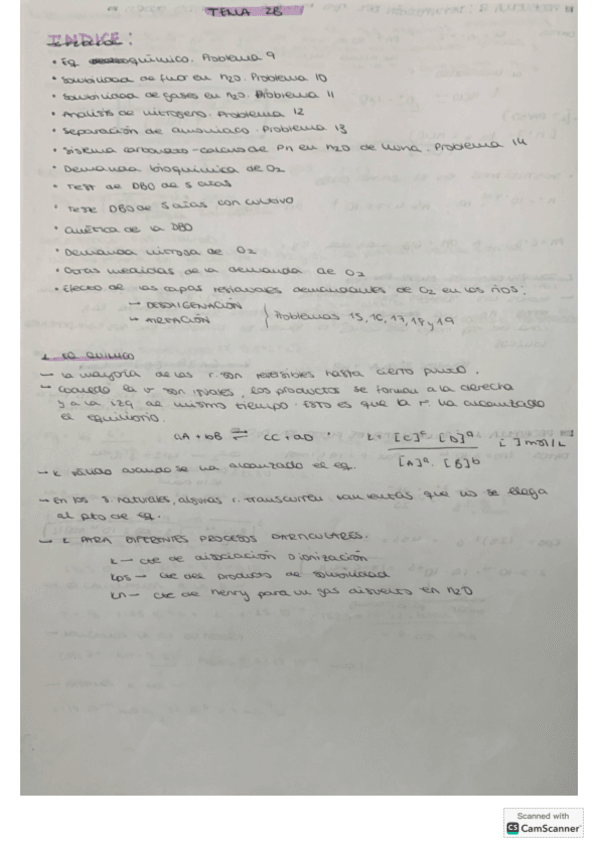 TEMA 2B
INDICE:
• Eq químico. Problema 9
• Solubilidad de fluor en H2O. Problema 10
• Solubilidad de gases en H2O. Problema 11
• Análisis de nitrógeno. Problema 12
• Separación de amoniaco. Problema 13
• Sistema carbonato - cálculo de PH en H2O de lluvia. Problema 14
• Demanda bioquimica de O2
• Test de DBO de 5 días
• Test DBO de 5 días con cultivo
• Cinética de la DBO
• Demanda nitrosa de O2
• Otras medidas de la demanda de O2
• Efecto de las capas residuales demandantes de O2 en los ríos:
→ DESOXIGENACIÓN
→ AIREACIÓN } Problemas 15, 16, 17, 18 y 19
1. EQ QUIMICO
→ la mayoría de las r. son reversibles hasta cierto punto.
→ cuando la v son iguales, los productos se forman a la derecha
y a la izq al mismo tiempo. Esto es que la r. ha alcanzado
el equilibrio.
aA + bB ⇌ cC + dD K = [C]c · [D]d / [A]a · [B]b [ ] mol/L
→ K válido cuando se ha alcanzado el eq.
→ En los s. naturales, algunas r. transcurren tan lentas que no se llega
al pto de eq.
→ K PARA DIFERENTES PROCESOS PARTICULARES.
K → cte de disociación o ionización
Kps → cte del producto de solubilidad
KH → cte de Henry para un gas disuelto en H2O
Scanned with
CS CamScanner